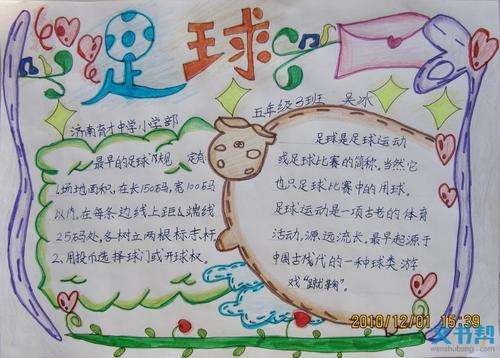 足球
济南育才中学小学部
五年级3班 吴冰
最早的足球规 定有
1.场地面积,在长150码,宽100码
以内,在每条边线上距离端线
25码处,各树立两根标志杆
2.用投币选择球门或开球权。
足球是足球运动
或足球比赛的简称,当然它
也只足球比赛中的用球。
足球运动是一项古老的体育
活动,源远流长,最早起源于
中国古代的一种球类游
戏"蹴鞠"。
2010/12/01 15:39
文书帮
wenshubang.com